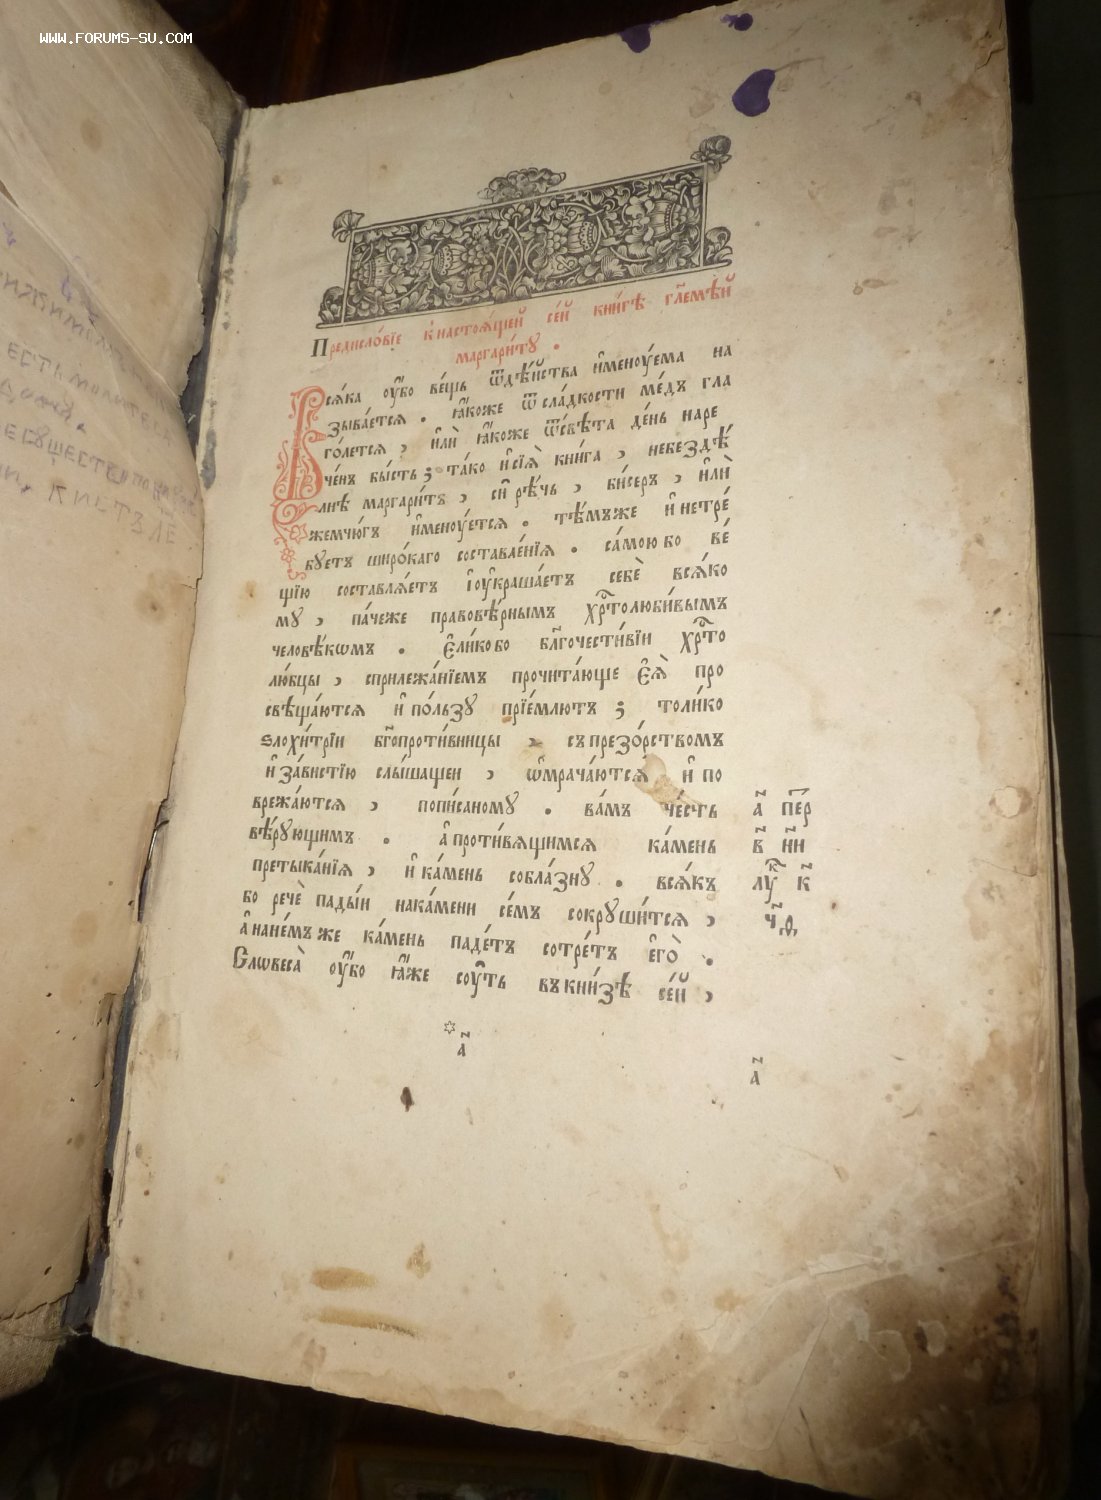 WWW.FORUMS-SU.COM
Предисло́вїе к̾настоѧ́щей се́й кни́гѣ гл҃емѣ́й
маргари́тꙋ .
Всѧ́ка ᲂу҆́бо ве́щь ѿдѣ́йства и҆меноуе́ма на
зыва́ется . ꙗ҆́коже ѿсла́дкости ме́дъ гла
го́лется , и҆лѝ ꙗ҆́коже ѿсвѣ́та де́нь наре
че́нъ бы́сть ; та́ко и҆сїѧ̀ кни́га , небездѣ́
лнѣ маргари́тъ , си̑ рѣ́чь , би́серъ , и҆лѝ
жемчю́гъ и҆меноу́ется . тѣ́мъже и҆нетре́
бꙋетъ широ́каго составле́нїѧ . са́мою бо ве́
щїю составлѧ́етъ і҆оу҆краша́етъ себѐ всѧ́ко
мꙋ , па́чеже правовѣ́рнымъ хрⷭ҇толюби́вымъ
человѣ́кѡмъ . є҆ли́кобо бл҃гочести́вїи хрⷭ҇то
лю́бцы , сприлежа́нїемъ прочита́юще є҆ѧ̀ про
свѣща́ются и҆ по́льзꙋ прїе́млютъ ; толи́ко
ѕлохи́трїи бг҃опроти́вницы , съпрезо́рствомъ
и҆ за́вистїю слы́шащеи , ѡ҆мрача́ются и҆ по
врежа́ются , пописаномꙋ . ва́мъ че́сть
вѣ́рꙋющимъ . а҆проти́вѧщимсѧ ка́мень
претыка́нїѧ , и҆ ка́мень собла́знꙋ . всѧ́къ
бо речѐ пады́и нака́мени се́мъ сокрꙋши́тся ,
а҆нане́мъже ка́мень паде́тъ сотре́тъ е҆го̀ .
Словеса̀ ᲂу҆́бо ꙗ҆́же соу́ть въкни́зѣ се́й ,
а҃ пе́р
л꙳ꙋ к҃
а҃
а҃